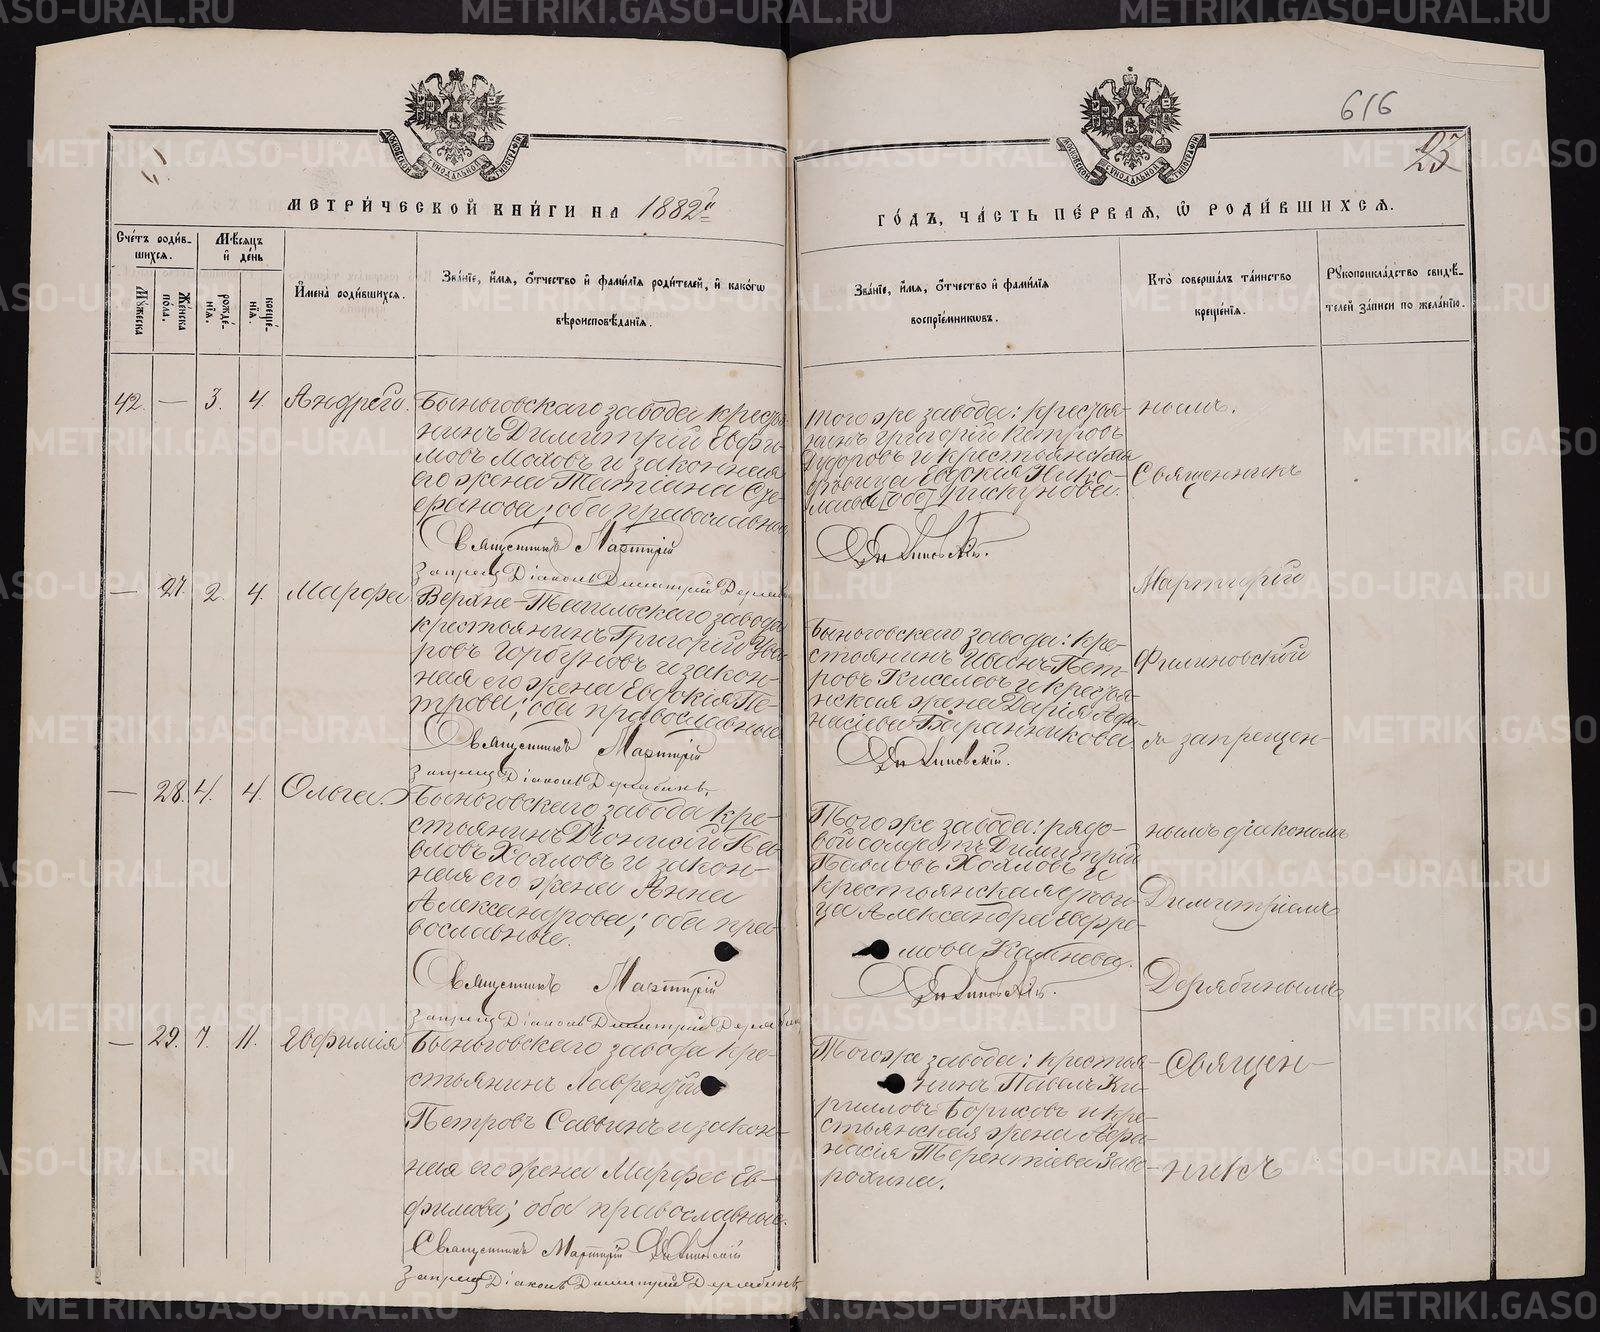 616
25
МЕТРИ́ЧЕСКОЙ КНИ́ГИ НА 1882й
ГО́ДЪ, ЧА́СТЬ ПЕ́РВАЯ, Ѡ РОДИ́ВШИХСЯ.
Сче́тъ роди́в-
шихся.
Му́жеска
Же́нска по́ла.
Мѣ́сяцъ и де́нь
рожде́-
нїя.
креще́-
нїя.
И҆мена̀ роди́вшихся.
Зва́нїе, и҆́мя, ѻ҆́тчество и҆ фами́лїя роди́телей, и҆ како́гѡ
вѣроисповѣ́данїя.
Зва́нїе, и҆́мя, ѻ҆́тчество и҆ фами́лїя
воспрїе́мникѡвъ.
Кто̀ соверша́лъ та́инство
креще́нїя.
Рꙋкоприкла́дство свидѣ́-
телей за́писи по жела́нїю.
42. — 3. 4. Андрей.
Быньговскаго завода кресть-
янинъ Димитрій Евфи-
мовъ Моховъ и законная
его жена Татіана Сте-
фанова; оба православные
Священникъ Мартирій
Запрещ Діаконъ Димитрій Деряб
тогоже завода: крестья-
нинъ Григорій Петровъ
Дудоровъ и крестьянская
дѣвица Евдокія Нико-
лаева Пискунова.
Филиновскій.
нымъ.
Священникъ
— 27. 2. 4. Марфа
Верхне-Тагильскаго завода
крестьянинъ Григорій Ува-
ровъ Горбуновъ и закон-
ная его жена Евдокія Пе-
трова; оба православные
Священникъ Мартирій
Запрещ Діаконъ Дерябинъ.
Быньговскаго завода: кре-
стьянинъ Иванъ Пет-
ровъ Киселевъ и крестья-
нская жена Дарія Афа-
насіева Баранникова
Филиновскій.
Мартирій
Филиновской
съ запрещен-
— 28. 4. 4. Ольга.
Быньговскаго завода кре-
стьянинъ Діонисій Па-
вловъ Хохловъ и закон-
ная его жена Анна
Александрова; оба пра-
вославные.
Священникъ Мартирій
Запрещ Діаконъ Димитрій Дерябин
Тогоже завода: рядо-
вой солдатъ Димитрій
Павловъ Хохловъ и
крестьянская дѣви-
ца Александра Евфро-
мова
Филиновскій.
нымъ діакономъ
Димитріемъ
Дерябинымъ
— 29. 7. 11. Евфимія
Быньговскаго завода кре-
стьянинъ Лаврентій
Петровъ Саввинъ и закон-
ная его жена Марфа Ев-
фимова; оба православные.
Священникъ Мартирій Филиновскій
Запрещ Діаконъ Димитрій Дерябинъ
Тогоже завода: крестья-
нинъ Павелъ Ки-
рилловъ Борисовъ и кре-
стьянская жена Афа-
насія Терентіева Заво-
рохина.
Священ-
никъ
METRIKI.GASO-URAL.RU